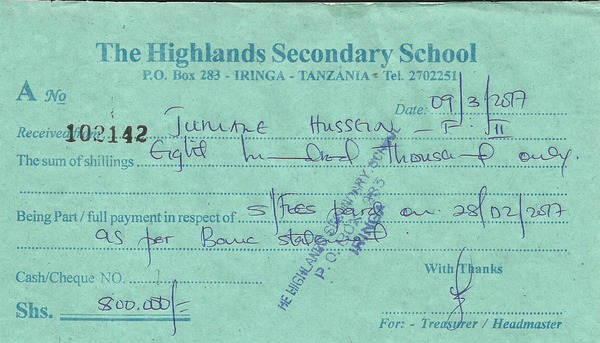 The Highlands Secondary School
P.O. Box 283 - IRINGA - TANZANIA - Tel. 2702251
A No
102142
Date: 09/3/2017
Received from HUSSEIN - F. II
The sum of shillings Eight hundred Thousand only.
Being Part / full payment in respect of S/Fees paid on 28/02/2017
as per Bank statement
Cash/Cheque NO.
With Thanks
Shs. 800.000/=
For: - Treasurer / Headmaster
HE HIGHLANDS SECONDARY SCHOOL
P. O. BOX 283
IRINGA